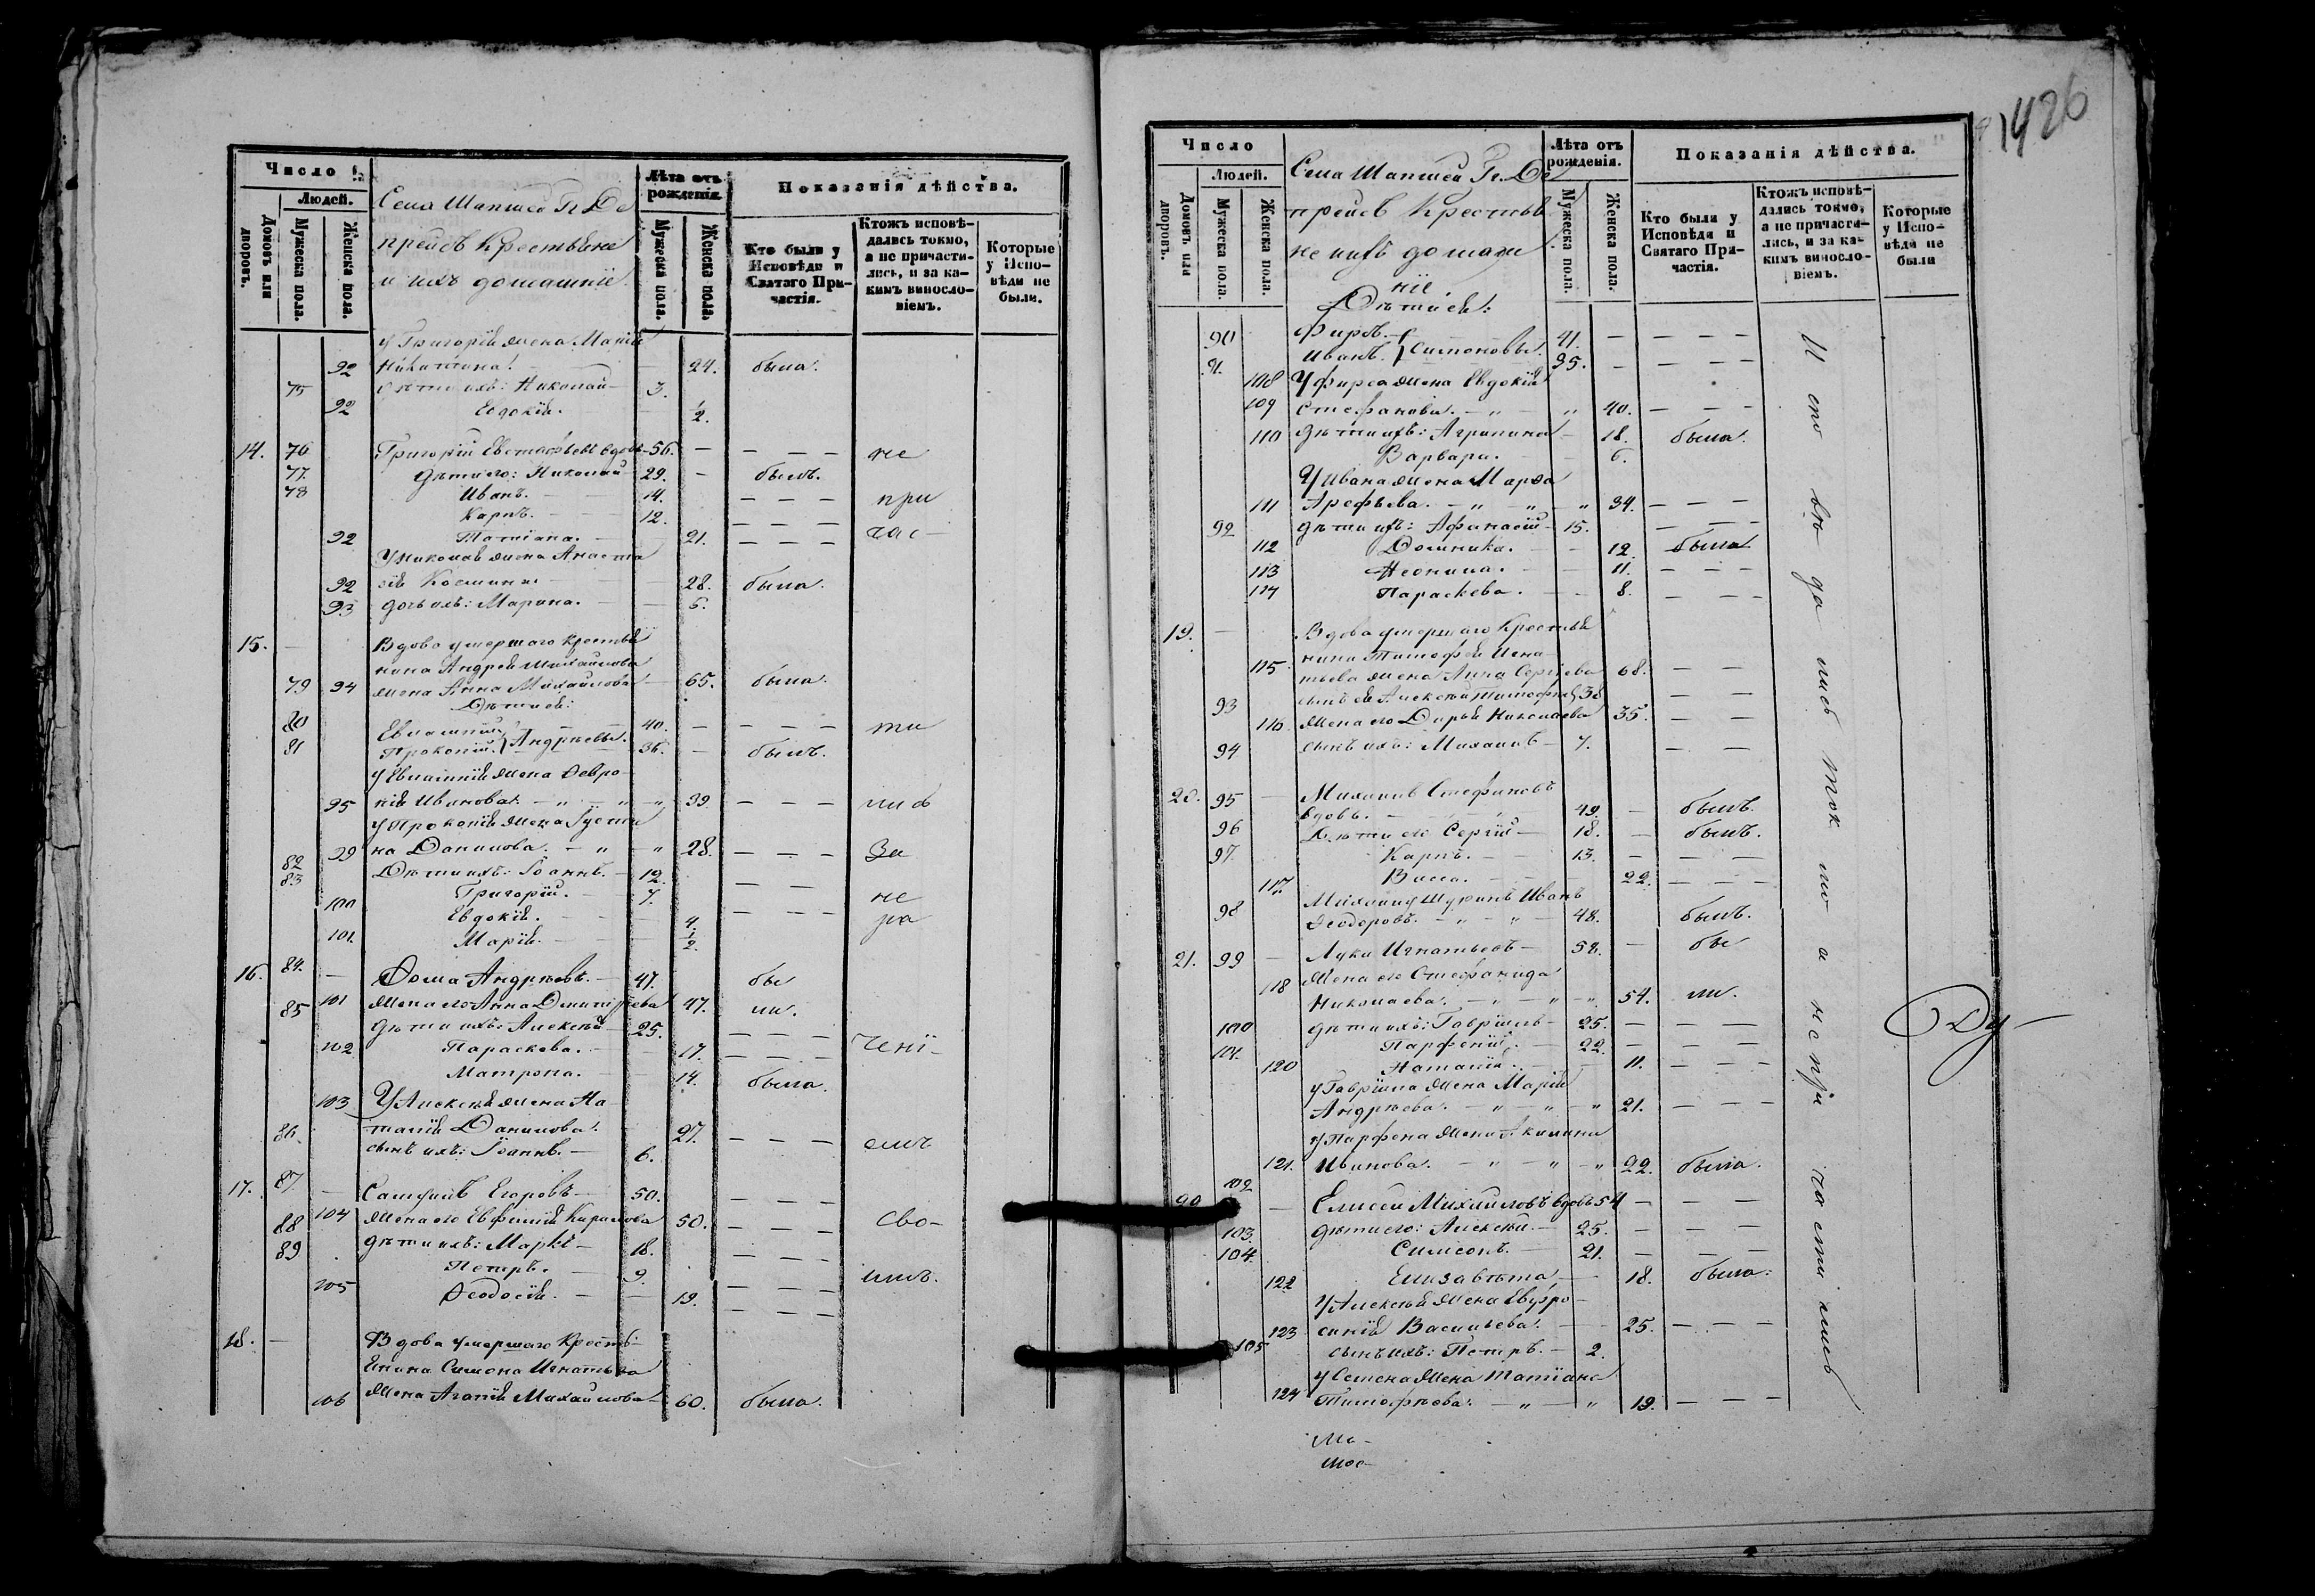 Число
Людей.
Домовъ или дворовъ.
Мужеска пола.
Женска пола.
Села Шапшеа Г. Де
преевъ Крестьяне
и ихъ домашніе.
Лѣта отъ рожденія.
Мужеска пола.
Женска пола.
Показанія дѣйства.
Кто были у Исповѣди и Святаго Причастія.
Ктожъ исповѣдались токмо, а не причастились, и за какимъ винословіемъ.
Которые у Исповѣди не были.
У Григорія жена Марія
92 Никитина. — 24. была.
75 дѣти ихъ: Николай — 3.
92 Евдокія. 1/2.
14. 76 Григорій Евстафьевъ вдовъ — 56. — — — — не
77. дѣти его: Николай — 29. — былъ.
78 Иванъ. — 14. — — — при
Карпъ. — 12. — — —
92 Татіана. — 21. — — — час-
У Николая жена Анаста
92 сія Косьмина — 28. была.
93 дочь ихъ: Марина. — 5.
15. — Вдова умершаго крестья
нина Андрея Михайлова
79 94 жена Анна Михайлова — 65. была.
Дѣти ея:
80 Евлампій 40. — — — — ти
81 Прокопій. } Андрѣевы. 36. — былъ.
У Евлампія жена Февро-
95 нія Иванова. — „ — „ — „ 39 — — — лись
У Прокопія жена Іусти
99 на Данилова. — „ — „ 28. — — — За
82 Дѣти ихъ: Іоаннъ. — 12. — — —
83 Григорій. — 7. не
100 Евдокія. — 4. — — — ра
101. Марія. — 1/2.
16. 84. — Ѳома Андрѣевъ. — 47. бы
101 жена его Анна Димитріева 47. ли.
85 дѣти ихъ: Алексѣй — 25. — — —
102 Параскева. — 17. — — — чені-
Матрона. — 14. была.
103 У Алексѣя жена На
талія Данилова. 27. — — — емъ
86. сынъ ихъ: Іоаннъ. — 6.
17. 87. — Самуилъ Егоровъ — 50. — — —
88 104 жена его Евфимія Карпова 50. — — — сво-
89 дѣти ихъ: Маркъ — 18. — — —
Петръ. — 9. — — — имъ.
105 Ѳеодосія. — — 19. — — —
18. — Вдова умершаго Кресть-
янина Симона Игнатьева
106 жена Агапія Михайлова — 60. была.
1426
Число
Людей.
Домовъ или дворовъ.
Мужеска пола.
Женска пола.
Села Шапшеа Г. Де
преевъ Крестья
не ихъ домаш
ніе.
Лѣта отъ рожденія.
Мужеска пола.
Женска пола.
Показанія дѣйства.
Кто были у Исповѣди и Святаго Причастія.
Ктожъ исповѣдались токмо, а не причастились, и за какимъ винословіемъ.
Которые у Исповѣди не были
Дѣти ея:
90 Фирсъ. 41. — — — —
91. Иванъ. } Симоновы. 35. — — — —
108 У Фирса жена Евдокія
109 Стефанова. — „ — „ 40. — — —
110 Дѣти ихъ: Агрипина — 18. была.
Варвара. — 6.
У Ивана жена Марѳа
111 Арефьева. — „ — „ — „ 34. — — —
92 дѣти ихъ: Афанасій — 15. — — —
112 Домника. — — 12. была
113 Неонила. — 11. — — —
114 Параскева. — — 8. — — —
19. — Вдова умершаго Крестьян
нина Тимофея Игна-
115 тьева жена Анна Сергіева 68. — —
93 сынъ ея Алексѣй Тимофѣевъ 38 — —
116 жена его Дарья Николаева 35. — —
94 сынъ ихъ: Михаилъ — 7. — —
20. 95 — Михаилъ Стефановъ
вдовъ. 49. — былъ.
96 Дѣти его Сергій — 18. — былъ.
97. Карпъ. — 13. — — —
117. Васса. — 22. — — —
Михаилу Шуринъ Иванъ
98 Ѳеодоровъ. — „ — „ — 48. былъ.
21. 99 — Лука Игнатьевъ — 58. — бы
118 жена его Стефанида
Николаева. — „ — „ — „ 54. ли.
100 дѣти ихъ: Гавріилъ — 25. — — —
101. Парфеній. — 22. — — —
120 Наталія. — 11. — — —
У Гавріила жена Марія
Андрѣева. — „ — „ — „ 21. — — —
У Парфена жена Акилина
121. Иванова. — „ — „ — „ 22. была.
102 — Елисей Михайловъ вдовъ 54 — — —
103. дѣти его: Алексѣй. — 25. — — —
104. Симеонъ. — 21. — — —
122 Елизавѣта — 18. была.
У Алексѣя жена Евфро-
123 синія Васильева. — 25. — — —
105 сынъ ихъ: Петръ. — 2.
У Семена жена Татіана
124 Тимофѣева. — „ — „ 19. — — —
Испо вѣ да лись ток мо а не при част ились